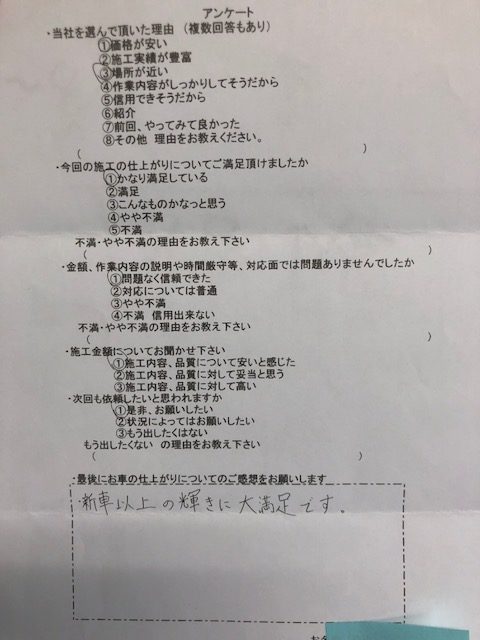 アンケート
・当社を選んで頂いた理由 (複数回答もあり)
①価格が安い
②施工実績が豊富
③場所が近い
④作業内容がしっかりしてそうだから
⑤信用できそうだから
⑥紹介
⑦前回、やってみて良かった
⑧その他 理由をお教えください。
( )
・今回の施工の仕上がりについてご満足頂けましたか
①かなり満足している
②満足
③こんなものかなっと思う
④やや不満
⑤不満
不満・やや不満の理由をお教え下さい
( )
・金額、作業内容の説明や時間厳守等、対応面では問題ありませんでしたか
①問題なく信頼できた
②対応については普通
③やや不満
④不満 信用出来ない
不満・やや不満の理由をお教え下さい
( )
・施工金額についてお聞かせ下さい
①施工内容、品質について安いと感じた
②施工内容、品質に対して妥当と思う
③施工内容、品質に対して高い
・次回も依頼したいと思われますか
①是非、お願いしたい
②状況によってはお願いしたい
③もう出したくはない
もう出したくない の理由をお教え下さい
( )
・最後にお車の仕上がりについてのご感想をお願いします
・新車以上の輝きに大満足です。